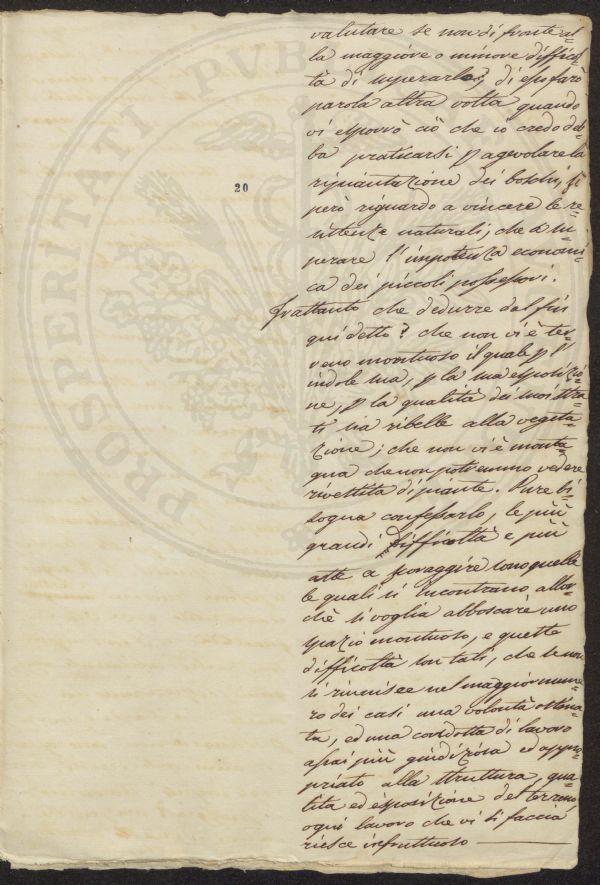 valutare se non di fronte al=
la maggiore o minore difficol=
tà di superarle; di esse farò
parola altra volta quando
vi esporrò ciò che io credo deb=
ba praticarsi p agevolare la
ripiantazione dei boschi, sì
però riguardo a vincere le re=
sistenze naturali, che a su=
perare l'impotenza economi=
ca dei piccoli possessori.
Frattanto che dedurre dal fin
qui detto? che non vi è ter=
reno montuoso il quale p l'
indole sua, p la sua esposizio=
ne, p la qualità dei suoi stra=
ti sia ribelle alla vegeta=
zione; che non vi è monta=
gna che non potremmo vedere
rivestita di piante. Pure bi=
sogna confessarlo, le più
grandi difficoltà e più
atte a scoraggire sono quelle
le quali si incontrano allor=
chè si voglia abboscare uno
spazio montuoso, e queste
difficoltà son tali, che se non
si riunisce nel maggior nume=
ro dei casi una volontà ostina=
ta, ed una condotta di lavoro
assai più giudiziosa ed appro=
priato alla struttura, qua=
lità ed esposizione del terreno
ogni lavoro che vi si faccia
riesce infruttuoso
20
PROSPERITATI PVBLICAE